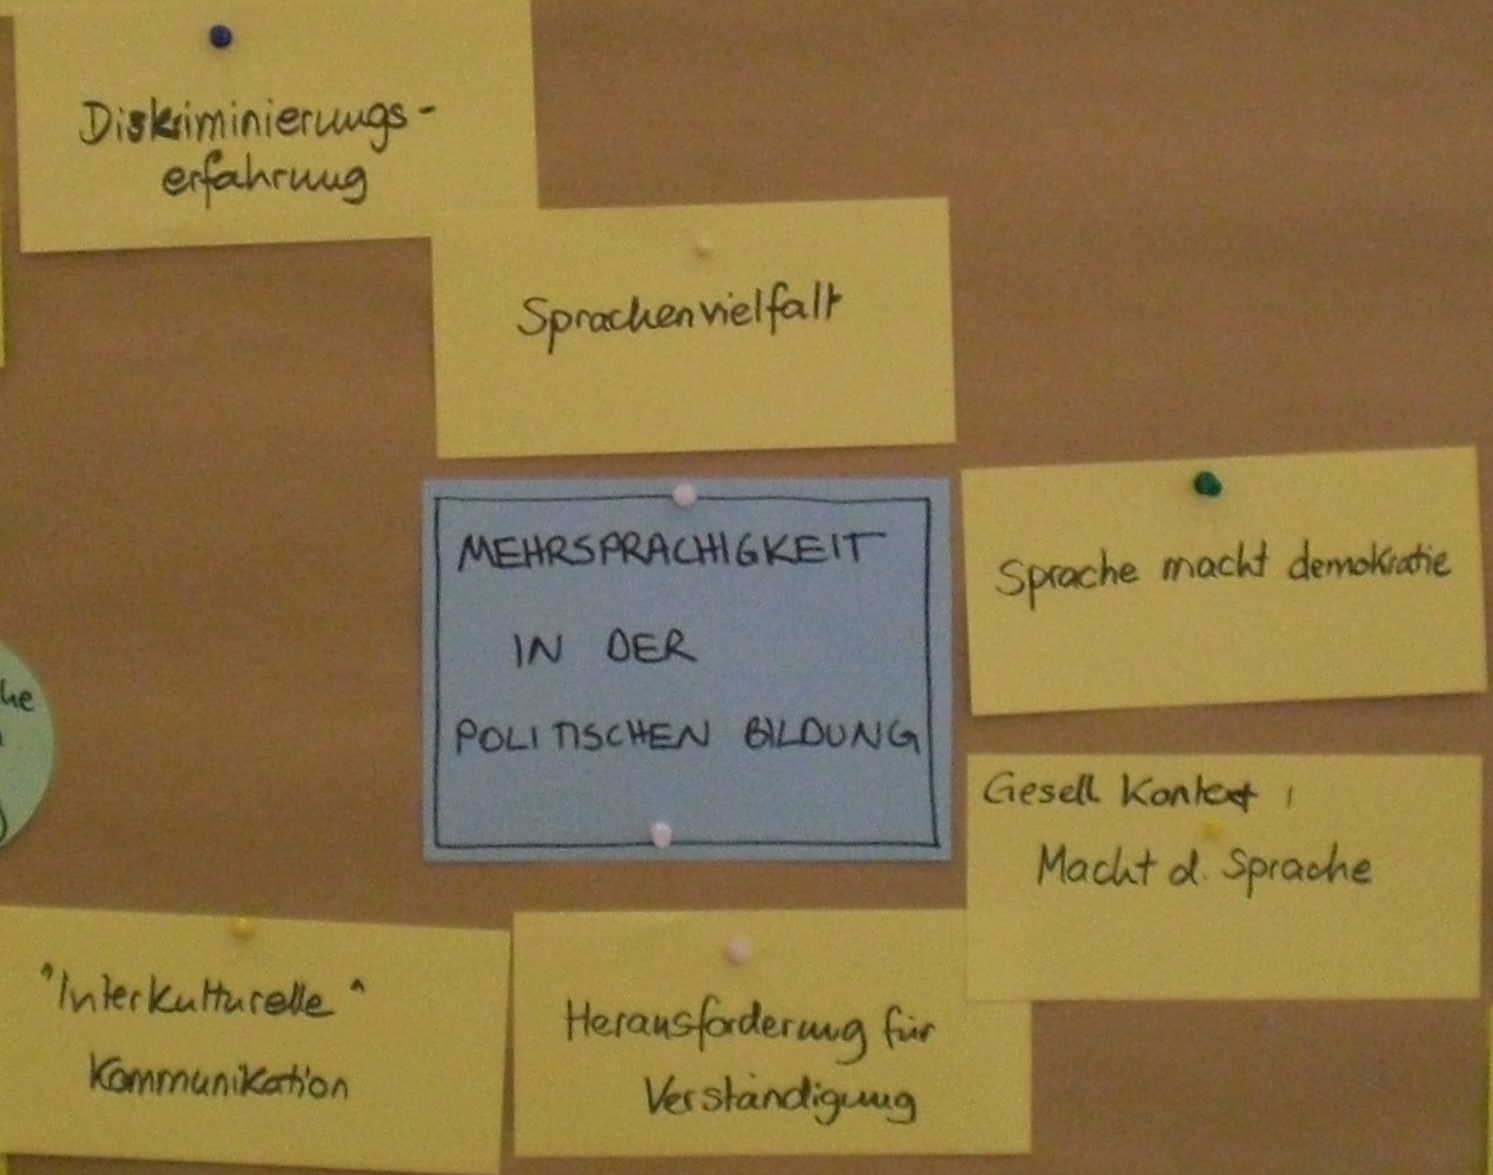 Diskriminierungs-
erfahrung
Sprachenvielfalt
MEHRSPRACHIGKEIT
IN DER
POLITISCHEN BILDUNG
Sprache macht demokratie
Gesell Kontext,
Macht d. Sprache
"Interkulturelle"
Kommunikation
Herausforderung für
Verständigung